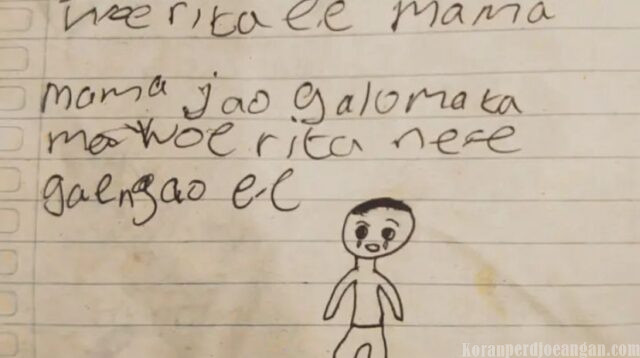 woe rita ee mama
mama jao galo mata
mae woe rita nee
gaengao ee
koranperdjoeangan.com